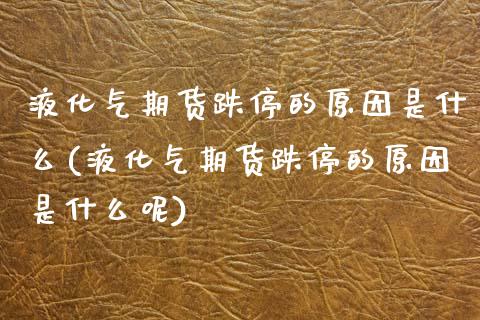 液化气期货跌停的原因是什
么(液化气期货跌停的原因
是什么呢)